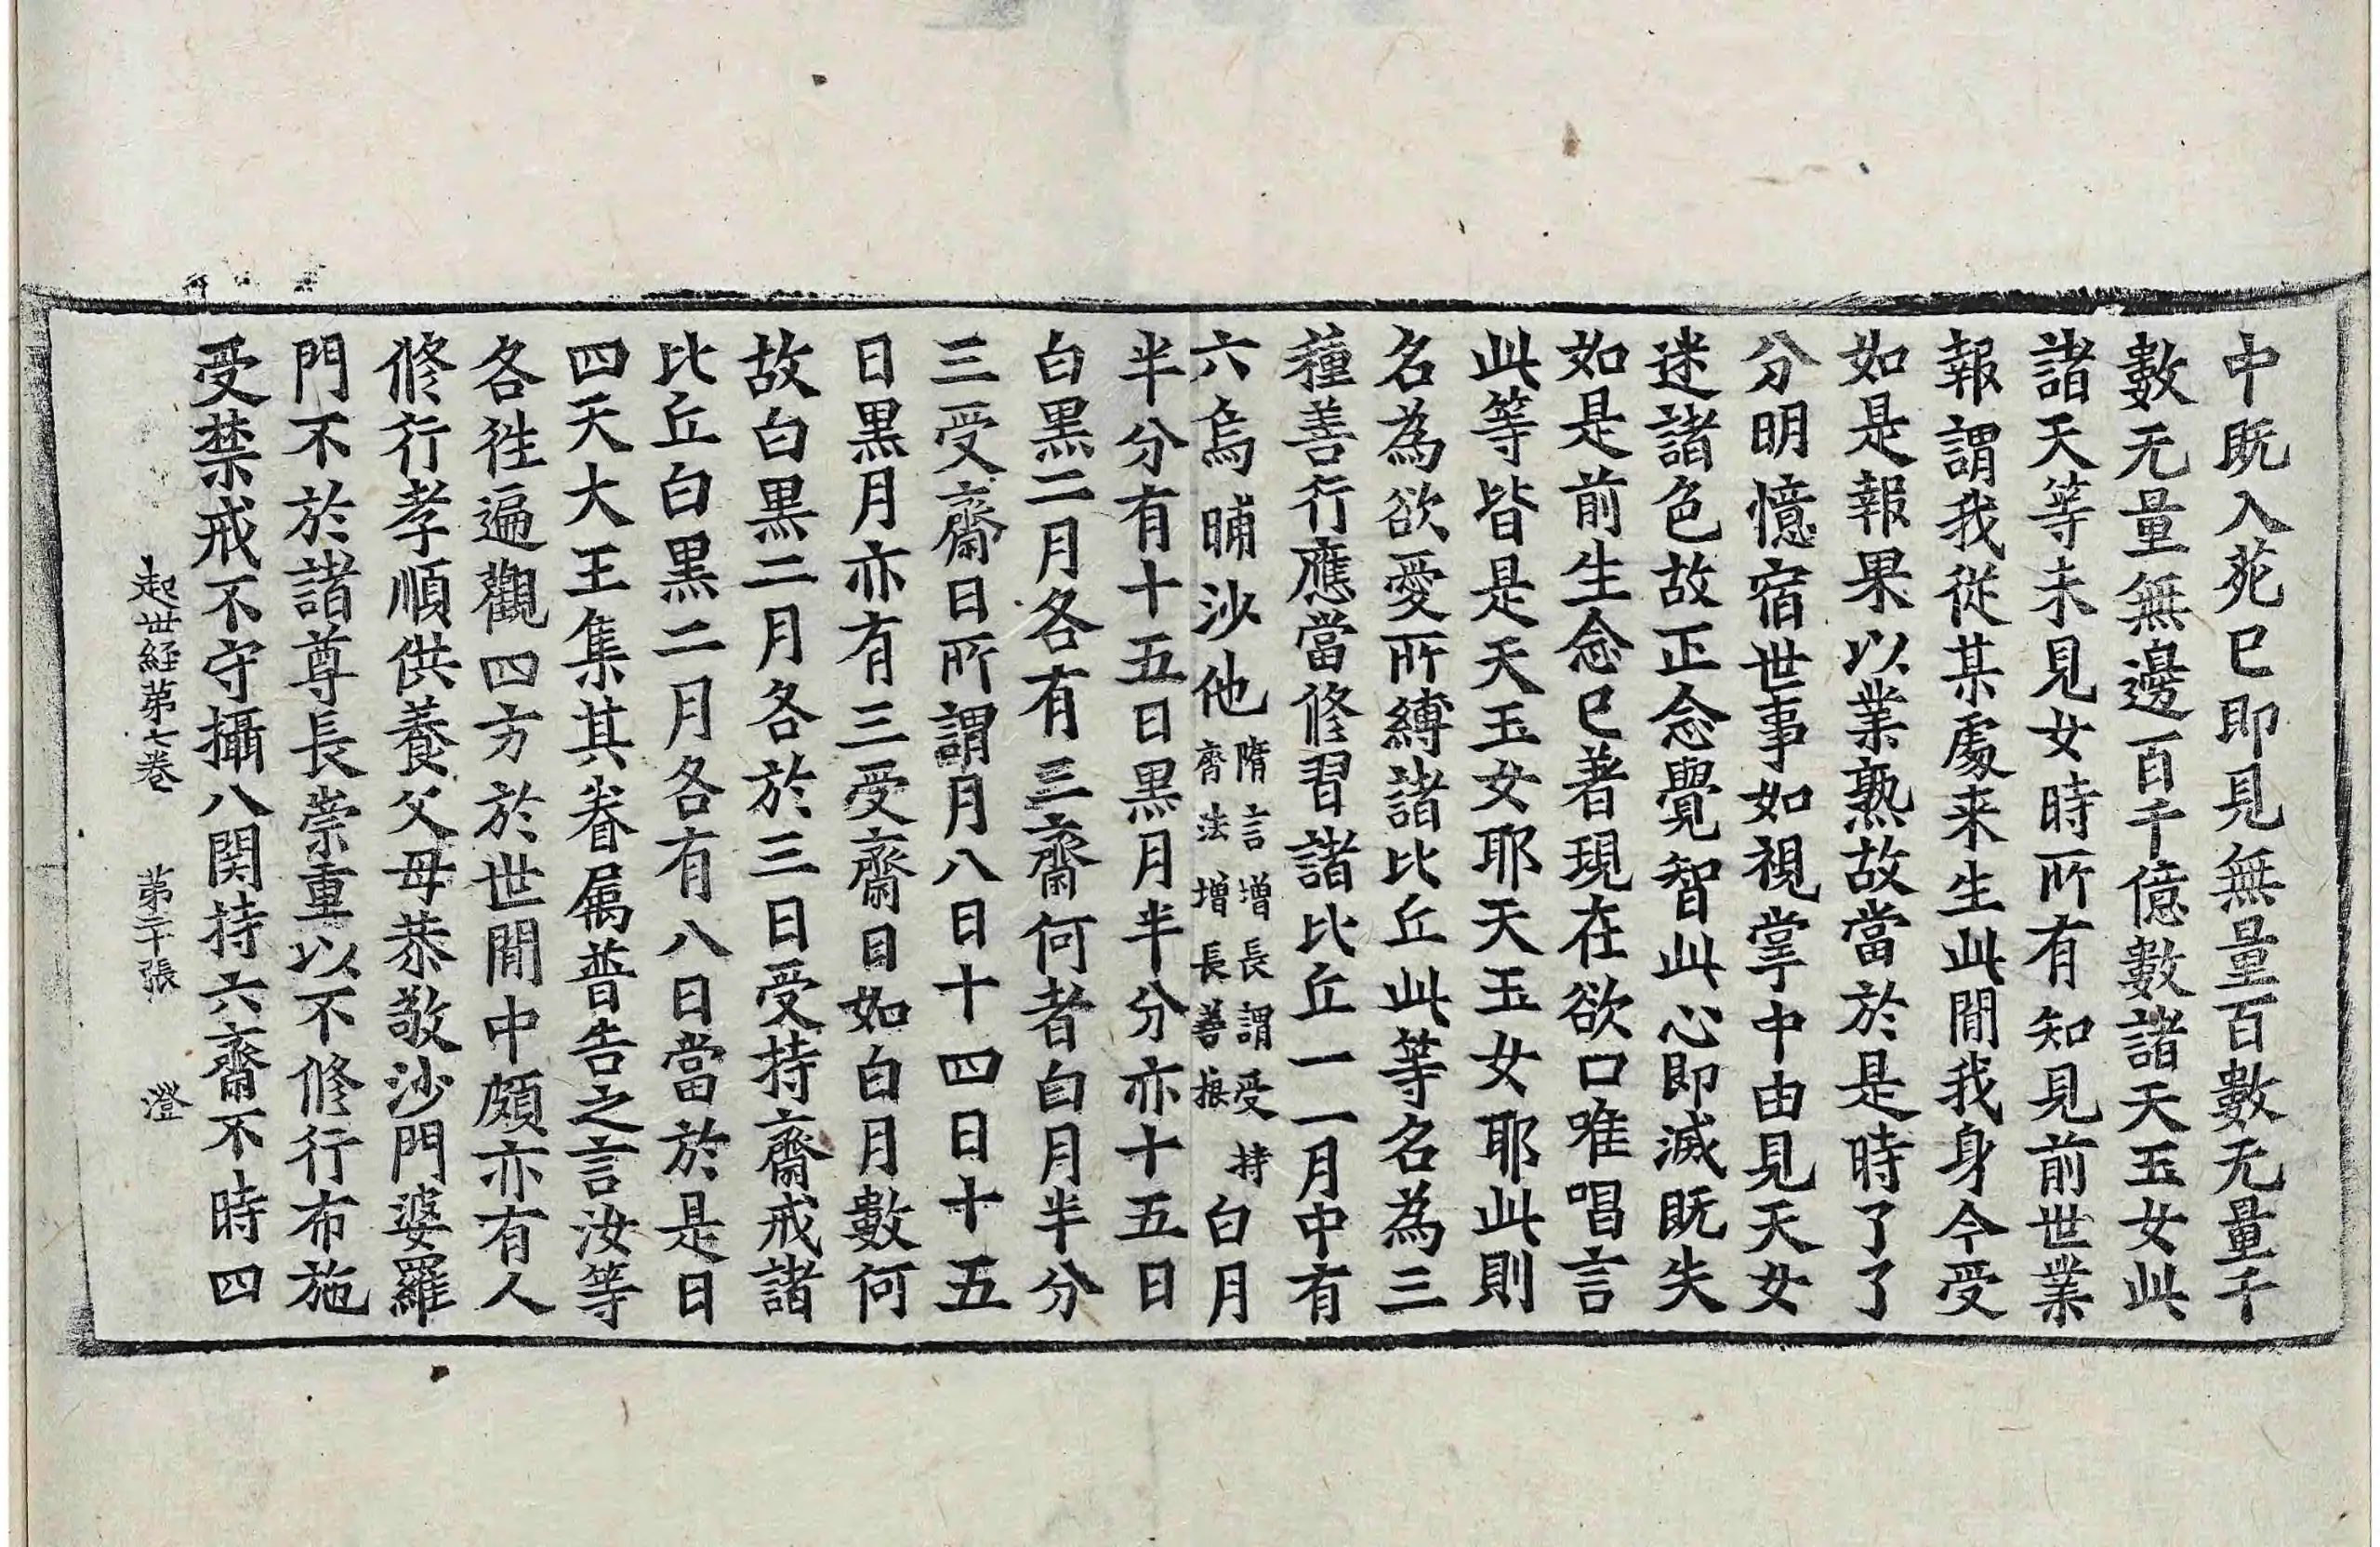 中既入苑已即見無量百數无量千
數无量無邊百千億數諸天玉女此
諸天等未見女時所有知見前世業
報謂我從某處来生此間我身今受
如是報果以業熟故當於是時了了
分明憶宿世事如視掌中由見天女
迷諸色故正念覺智此心即滅既失
如是前生念已著現在欲口唯唱言
此等皆是天玉女耶天玉女耶此則
名為欲愛所縛諸比丘此等名為三
種善行應當修習諸比丘一一月中有
六烏晡沙他
隋言增長謂受持
齋法增長善根
白月
半分有十五日黒月半分亦十五日
白黒二月各有三齋何者白月半分
三受齋日所謂月八日十四日十五
日黒月亦有三受齋日如白月數何
故白黒二月各於三日受持齋戒諸
比丘白黒二月各有八日當於是日
四天大王集其眷屬普告之言汝等
各往遍觀四方於世間中頗亦有人
修行孝順供養父母恭敬沙門婆羅
門不於諸尊長崇重以不修行布施
受禁戒不守攝八関持六齋不時四
起世経苐七卷 苐二十張 澄